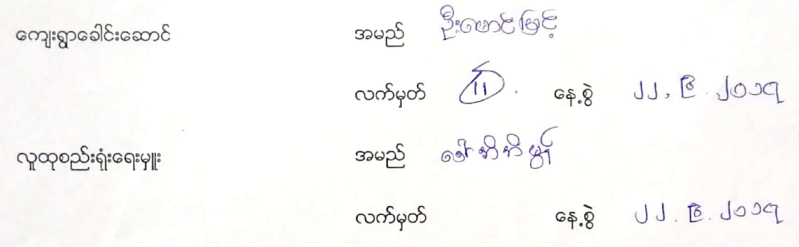 ကျေးရွာခေါင်းဆောင် အမည် ဦးမောင်မြင့်
လက်မှတ် နေ့စွဲ ၂၂.၆.၂၀၁၇
လူထုစည်းရုံးရေးမှူး အမည် ဒေါ်
လက်မှတ် နေ့စွဲ ၂၂.၆.၂၀၁၇